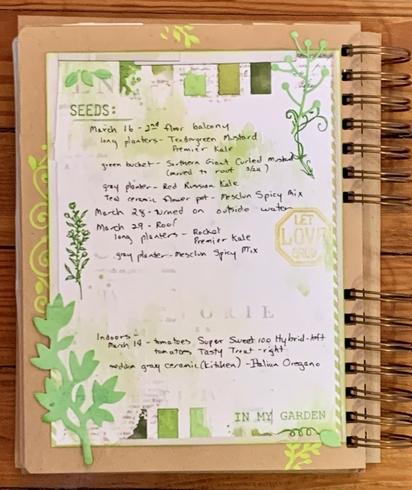 SEEDS:
March 16 - 2nd floor balcony
long planters - Tendergreen Mustard
Premier Kale
green bucket - Southern Giant Curled Mustard
(moved to roof 3/24)
gray planter - Red Russian Kale
ceramic flower pot - Mesclun Spicy Mix
March 28 - turned on outside water
March 29 - Roof
long planters - Rocket
Premier Kale
gray planter - Mesclun Spicy Mix
LET
LOVE
GROW
Indoors -
March 19 - tomatoes Super Sweet 100 Hybrid - left
tomatoes Tasty Treat - right
medium gray ceramic (kitchen) - Italian Oregano
IN MY GARDEN